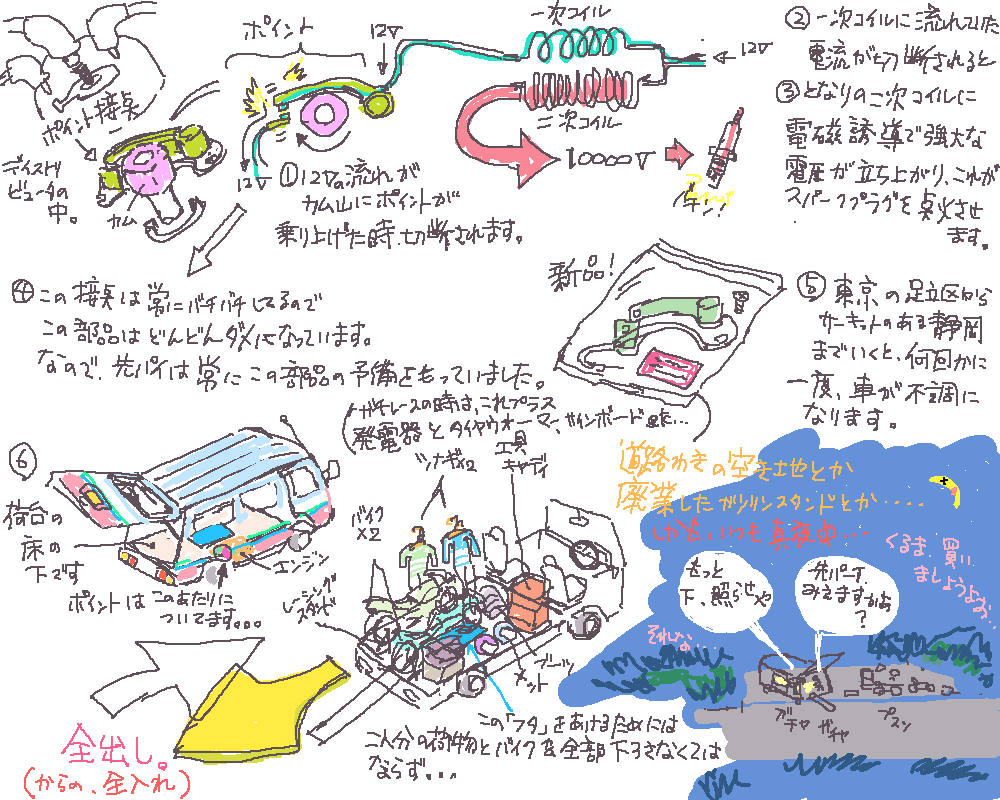 ポイント
12V
一次コイル
12V
二次コイル
10000V
バチン!
ポイント接点
ディストリ
ビュータの
中。
カム
12V
①12Vの流れが
カム山にポイントが
乗り上げた時、切断されます。
②一次コイルに流れていた
電流が切断されると
③となりの二次コイルに
電磁誘導で強大な
電圧が立ち上がり、これが
スパークプラグを点火させ
ます。
④この接点は常にバチバチしてるので
この部品はどんどんダメになっています。
なので、先パイは常にこの部品の予備をもっていました。
新品!
(ガチレースの時は、これプラス
発電器とタイヤウォーマー、サインボード etc...)
⑤東京の足立区から
サーキットのある静岡
までいくと、何回かに
一度、車が不調に
なります。
⑥
荷台の
床の
下です
エンジン
ポイントはこのあたりに
ついてます。。。
ツナギx2
工具
キャディ
バイク
x2
レーシング
スタンド
ブーツ
メット
この「フタ」をあけるためには
二人分の荷物とバイクを全部下ろさなくては
ならず。。。
全出し。
(からの、全入れ)
道路わきの空き土地とか
廃業したガソリンスタンドとか....
しかも、いつも真夜中...
くるま、買い
ましょうよお...
もっと
下、照らせや
先パーイ
みえますかぁ
?
それな...
ガチャ
ガチャ
プスン